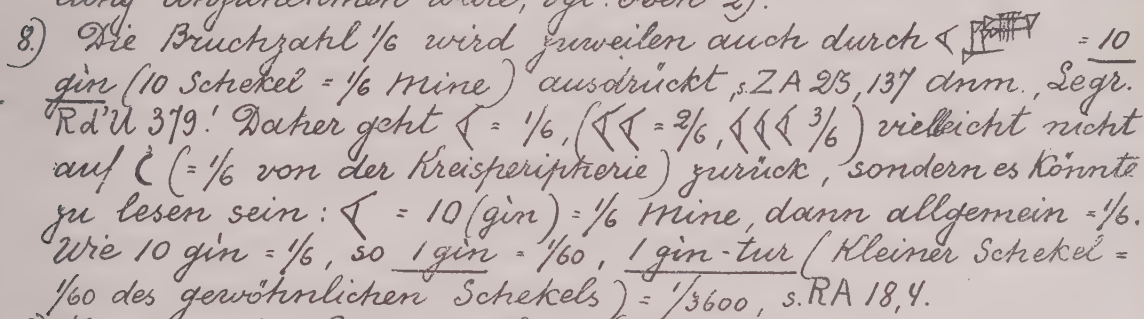 dung anzunehmen wäre, vgl. oben 2).
8.) Die Bruchzahl 1/6 wird zuweilen auch durch 𒌋 𒂆 = 10
gin (10 Schekel = 1/6 Mine) ausdrückt, s. ZA 25, 137 Anm., Legr.
Rd'U 379! Daher geht = 1/6, ( = 2/6, 3/6) vielleicht nicht
auf (= 1/6 von der Kreisperipherie) zurück, sondern es könnte
zu lesen sein: = 10 (gin) = 1/6 Mine, dann allgemein = 1/6.
Wie 10 gin = 1/6, so 1 gin = 1/60, 1 gin-tur (Kleiner Schekel =
1/60 des gewöhnlichen Schekels) = 1/3600, s. RA 18,4.